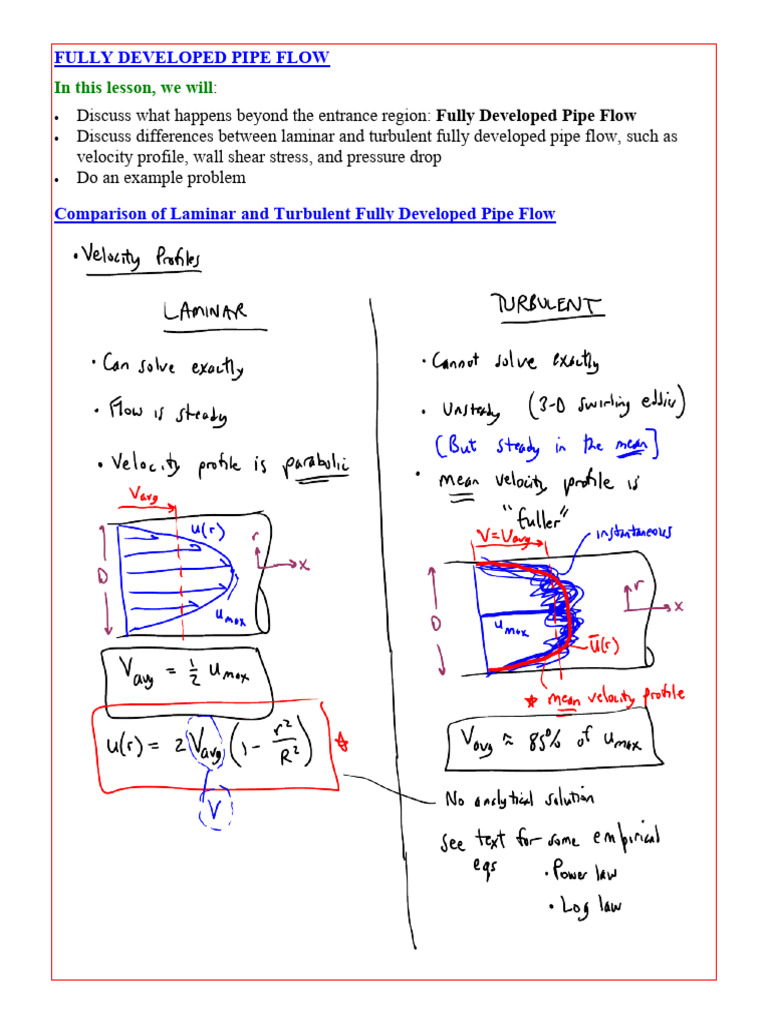 FULLY DEVELOPED PIPE FLOW
In this lesson, we will:
• Discuss what happens beyond the entrance region: Fully Developed Pipe Flow
• Discuss differences between laminar and turbulent fully developed pipe flow, such as
velocity profile, wall shear stress, and pressure drop
• Do an example problem
Comparison of Laminar and Turbulent Fully Developed Pipe Flow
• Velocity Profiles
LAMINAR
• Can solve exactly
• Flow is steady
• Velocity profile is parabolic
Vavg
u(r)
r
x
D
umax
Vavg = 1/2 umax
u(r) = 2 Vavg (1 - r²/R²)
V
TURBULENT
• Cannot solve exactly
• Unsteady (3-D swirling eddies)
(But steady in the mean]
• mean velocity profile is
"fuller"
V=Vavg
instantaneous
r
x
D
umax
ū(r)
★ mean velocity profile
Vavg ≈ 85% of umax
No analytical solution
See text for some empirical
eqs
• Power law
• Log law